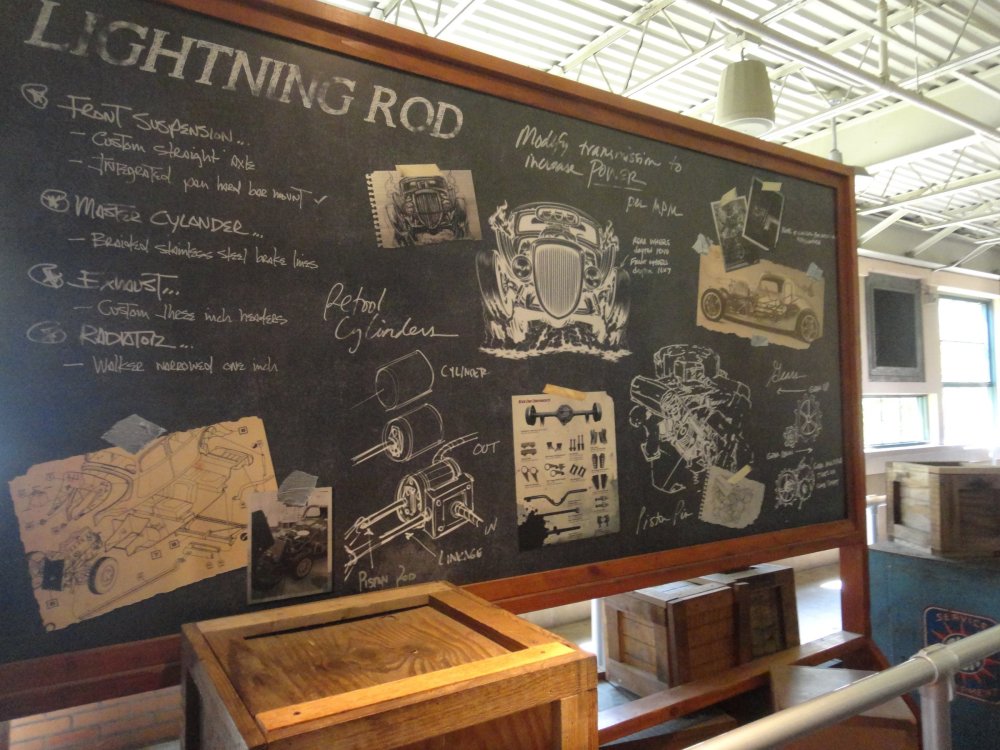 LIGHTNING ROD
FRONT SUSPENSION...
- CUSTOM STRAIGHT AXLE
- INTEGRATED PAN HARD BAR MOUNT ✓
MASTER CYLANDER...
- BRAIDED STAINLESS STEEL BRAKE LINES
EXHAUST...
- CUSTOM THREE INCH HEADERS
RADIATOR...
- WALKER NARROWED ONE INCH
Modify transmission to
increase Power
per MPH
REAR WHEELS
FRONT WHEELS
Retool
Cylinders
CYLINDER
OUT
IN
LINKAGE
PISTAN ROD
Gears
GEAR UP
GEAR DOWN
Piston Pin
SERVICE